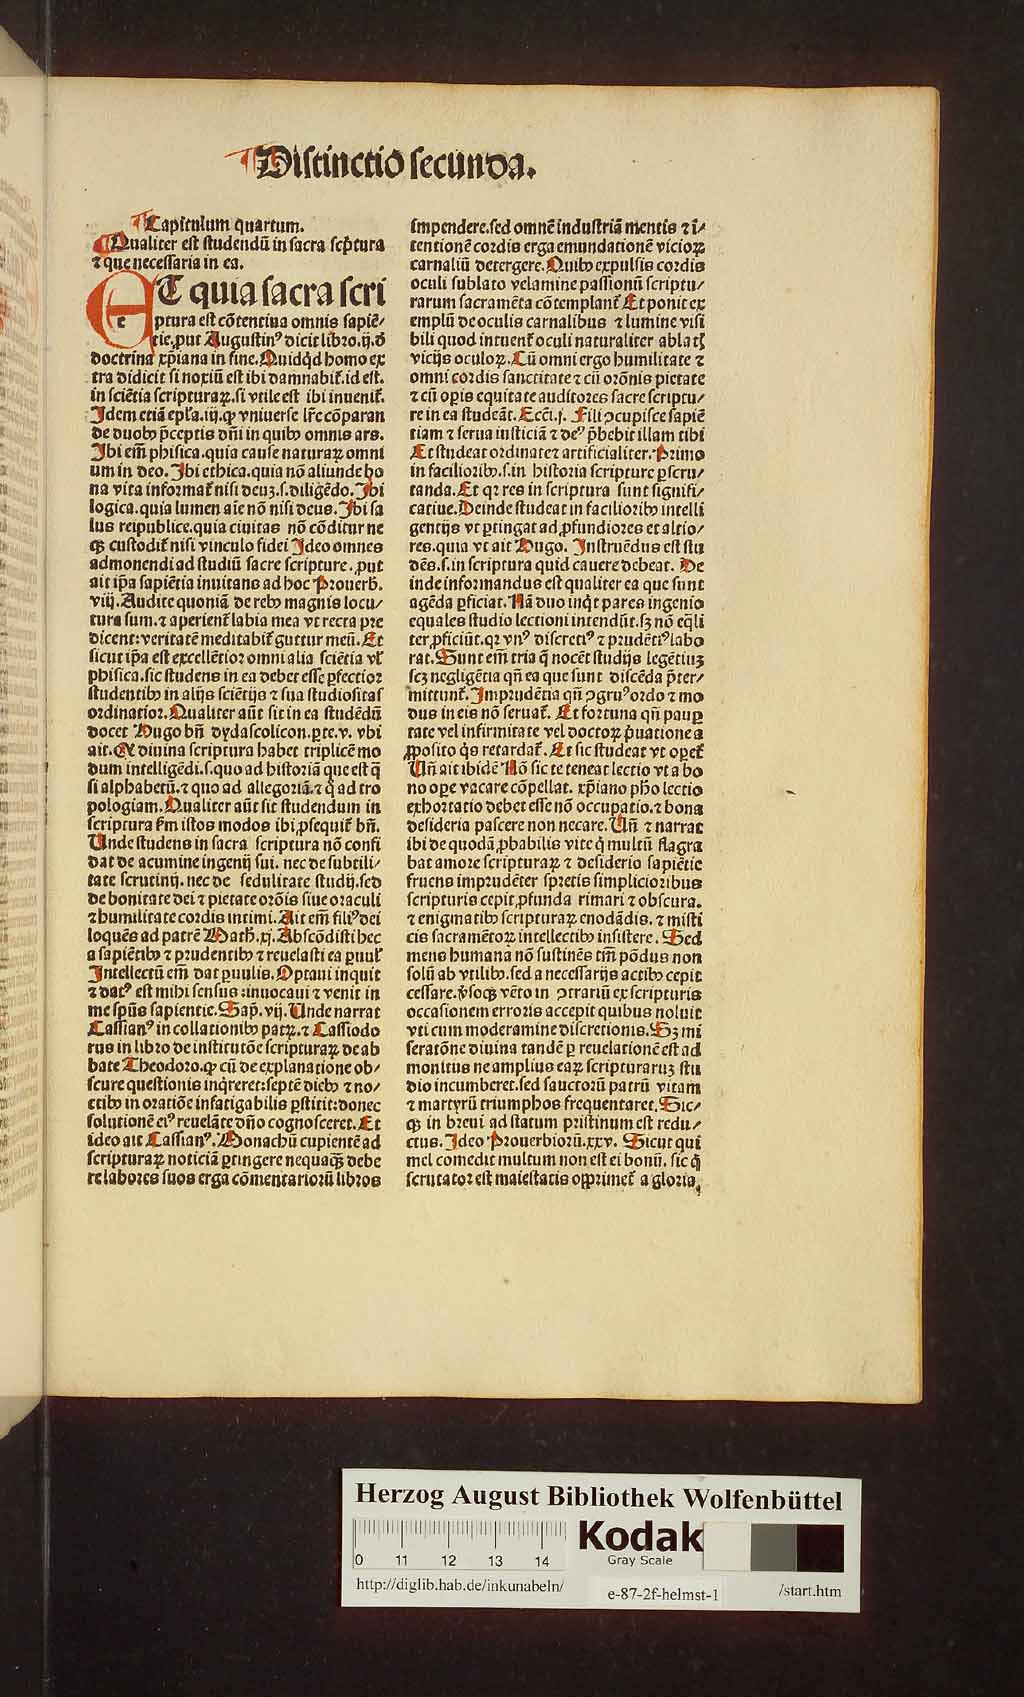 ¶Distinctio secunda.
¶Capitulum quartum.
¶Qualiter est studendū in sacra scp̄tura
⁊ que necessaria in ea.
ET quia sacra scri
ptura est cōtentiua omnis sapiē⸗
tie, ꝓut Augustinꝰ dicit libro.ij.đ
doctrina xp̄iana in fine. Quidqͥd homo ex
tra didicit si noxiū est ibi damnabit̉.id est.
in sciētia scripturaꝝ.si vtile est ibi inuenit̉.
Idem etiā ep̄la.iij.ꝙ vniuerse lr̄e cōparan
de duobꝰ p̄ceptis dn̄i in quibꝰ omnis ars.
Ibi em̄ phisica.quia cause naturaꝝ omni
um in deo. Ibi ethica.quia nō aliunde bo
na vita informat̉ nisi deuꝫ.s.diligēdo. Ibi
logica.quia lumen aīe nō nisi deus. Ibi sa
lus reipublice.quia ciuitas nō cōditur ne
qꝫ custodit̉ nisi vinculo fidei Ideo omnes
admonendi ad studiū sacre scripture.ꝓut
ait ip̄a sapiētia inuitans ad hoc Prouerb̄.
viij. Audite quoniā de rebꝰ magnis locu⸗
tura sum.⁊ aperient̉ labia mea vt recta pre
dicent:veritatē meditabit̉ guttur meū. Et
sicut ip̄a est excellētior omni alia sciētia vl̉
phisica.sic studens in ea debet esse ꝑfectior
studentibꝰ in alijs sciētijs ⁊ sua studiositas
ordinatior. Qualiter aūt sit in ea studēdū
docet Hugo bn̄ dydascolicon.ꝑte.v. vbi
ait. Qꝫ diuina scriptura habet triplicē mo
dum intelligēdi.s.quo ad historiā que est qͣ
si alphabetū.⁊ quo ad allegoriā.⁊ qͦ ad tro
pologiam. Qualiter aūt sit studendum in
scriptura ẜm istos modos ibi ꝓsequit̉ bn̄.
Unde studens in sacra scriptura nō confi
dat de acumine ingenij sui. nec de subtili⸗
tate scrutinij. nec de sedulitate studij.sed
de bonitate dei ⁊ pietate orōis siue oraculi
⁊ humilitate cordis intimi. Ait em̄ filiꝰ dei
loquēs ad patrē Math̄.xj. Abscōdisti hec
a sapiētibꝰ ⁊ prudentibꝰ ⁊ reuelasti ea ꝑuul̉
Intellectū em̄ dat ꝑuulis. Optaui inquit
⁊ datꝰ est mihi sensus :inuocaui ⁊ venit in
me sp̄us sapientie. Sap̄. vij. Unde narrat
Cassianꝰ in collationibꝰ patꝝ.⁊ Cassiodo
rus in libro de institutōe scripturaꝝ de ab
bate Theodoro.ꝙ cū de explanatione ob⸗
scure questionis inqͥreret:septē diebꝰ ⁊ no⸗
ctibꝰ in oratiōe infatigabilis ꝑstitit:donec
solutionē eiꝰ reuelāte dn̄o cognosceret. Et
ideo ait Cassianꝰ. Monachū cupientē ad
scripturaꝝ noticiā ꝑtingere nequaqꝫ debe
re labores suos erga cōmentariorū libros
impendere.sed omnē industriā mentis ⁊ ī⸗
tentionē cordis erga emundationē vicioꝝ
carnaliū detergere. Quibꝰ expulsis cordis
oculi sublato velamine passionū scriptu⸗
rarum sacramēta cōtemplant̉ Et ponit ex
emplū de oculis carnalibus ⁊ lumine visi
bili quod intuent̉ oculi naturaliter ablatꝭ
vicijs oculoꝝ. Cū omni ergo humilitate ⁊
omni cordis sanctitate ⁊ cū orōnis pietate
⁊ cū oꝑis equitate auditores sacre scriptu⸗
re in ea studeāt. Ecci.j. Fili ꝯcupisce sapiē
tiam ⁊ serua iusticiā ⁊ deꝰ p̄bebit illam tibi
Et studeat ordinate⁊ artificialiter. Primo
in facilioribꝰ.s.in historia scripture ꝑscru⸗
tanda. Et qꝛ res in scriptura sunt signifi⸗
catiue. Deinde studeat in facilioribꝰ intelli
gentijs vt ꝑtingat ad ꝓfundiores et altio⸗
res.quia vt ait Hugo. Instruēdus est stu
dēs.s.in scriptura quid cauere debeat. De
inde informandus est qualiter ea que sunt
agēda ꝑficiat. Nā duo inqͥt pares ingenio
equales studio lectioni intendūt.sꝫ nō eq̄li
ter ꝓficiūt.qꝛ vnꝰ discretiꝰ ⁊ prudētiꝰ labo
rat. Sunt em̄ tria q̄ nocēt studijs legētiuꝫ
scꝫ negligētia qn̄ ea que sunt discēda p̄ter⸗
mittunt̉. Imprudētia qn̄ ꝯgruꝰ ordo ⁊ mo
dus in eis nō seruat̉. Et fortuna qn̄ pauꝑ
tate vel infirmitate vel doctoꝝ p̄uatione a
ꝓposito qͥs retardat̉. Et sic studeat vt oꝑet̉
Un̄ ait ibidē Nō sic te teneat lectio vt a bo
no oꝑe vacare cōpellat. xp̄iano ph̄o lectio
exhortatio debet esse nō occupatio.⁊ bona
desideria pascere non necare. Un̄ ⁊ narrat
ibi de quodā ꝓbabilis vite qͥ multū flagra
bat amore scripturaꝝ ⁊ desiderio sapiētie
fruens imprudēter spretis simplicioribus
scripturis cepit ꝓfunda rimari ⁊ obscura.
⁊ enigmatibꝰ scripturaꝝ enodādis. ⁊ misti
cis sacramētoꝝ intellectibꝰ insistere. Sed
mens humana nō sustinēs tm̄ pōdus non
solū ab vtilibꝰ.sed a necessarijs actibꝰ cepit
cessare.v̉soqꝫ vēto in ꝯtrariū ex scripturis
occasionem erroris accepit quibus noluit
vti cum moderamine discretionis. Sꝫ mi
seratōne diuina tandē ꝑ reuelationē est ad
monitus ne amplius eaꝝ scripturaruꝫ stu
dio incumberet.sed sanctorū patrū vitam
⁊ martyrū triumphos frequentaret. Sic⸗
qꝫ in breui ad statum pristinum est redu⸗
ctus. Ideo Prouerbiorū.xxv. Sicut qui
mel comedit multum non est ei bonū. sic q̄
scrutator est maiestatis opprimet̉ a gloria.
Herzog August Bibliothek Wolfenbüttel
0 11 12 13 14
Kodak
Gray Scale
http://diglib.hab.de/inkunabeln/
e-87-2f-helmst-1
/start.htm